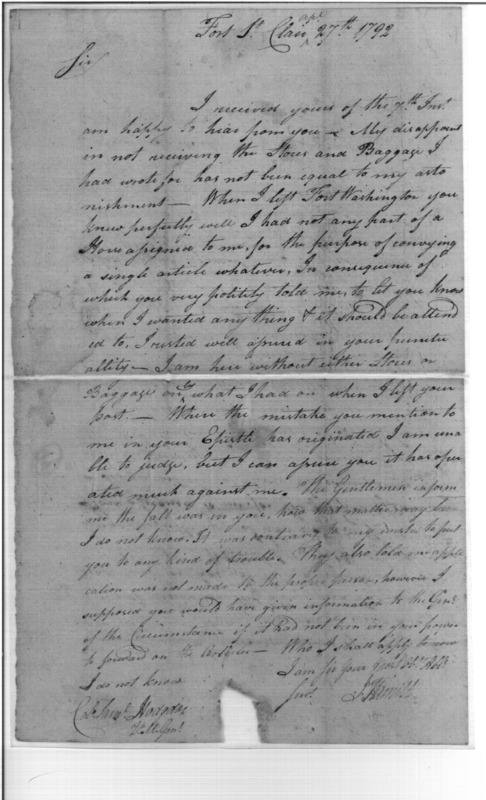 Fort St. Clair apl 27th 1792
Sir
I received yours of the 7th Inst.
am happy to hear from you & My disappoint
in not receiving the Stores and Baggage I
had wrote for has not been equal to my asto
nishment — When I left Fort Washington you
knew perfectly well I had not any part of a
Horse assigned to me, for the purpose of conveying
a single article whatever, In consequence of
which you very politely told me, to let you know
when I wanted any thing & it should be attend
ed to, I rested well assured in your punctu
allity — I am here without either Stores or
Baggage only what I had on when I left your
post. — Where the mistake you mention to
me in your Epistle has originated I am una
ble to judge, but I can assure you it has oper
ated much against me. The Gentlemen inform
me the fault was in you, how that matter may be
I do not know. It was contrary to my desire to put
you to any kind of trouble. They also told me appli
cation was not made to the proper person, however I
supposed you would have given information to the Genl.
of the Circumstance if it had not been in your power
to forward on the Articles — Who I shall apply to now
I do not know
I am Sir your Most Obt. Hbl.
Servt.
Saml. Hodgdon